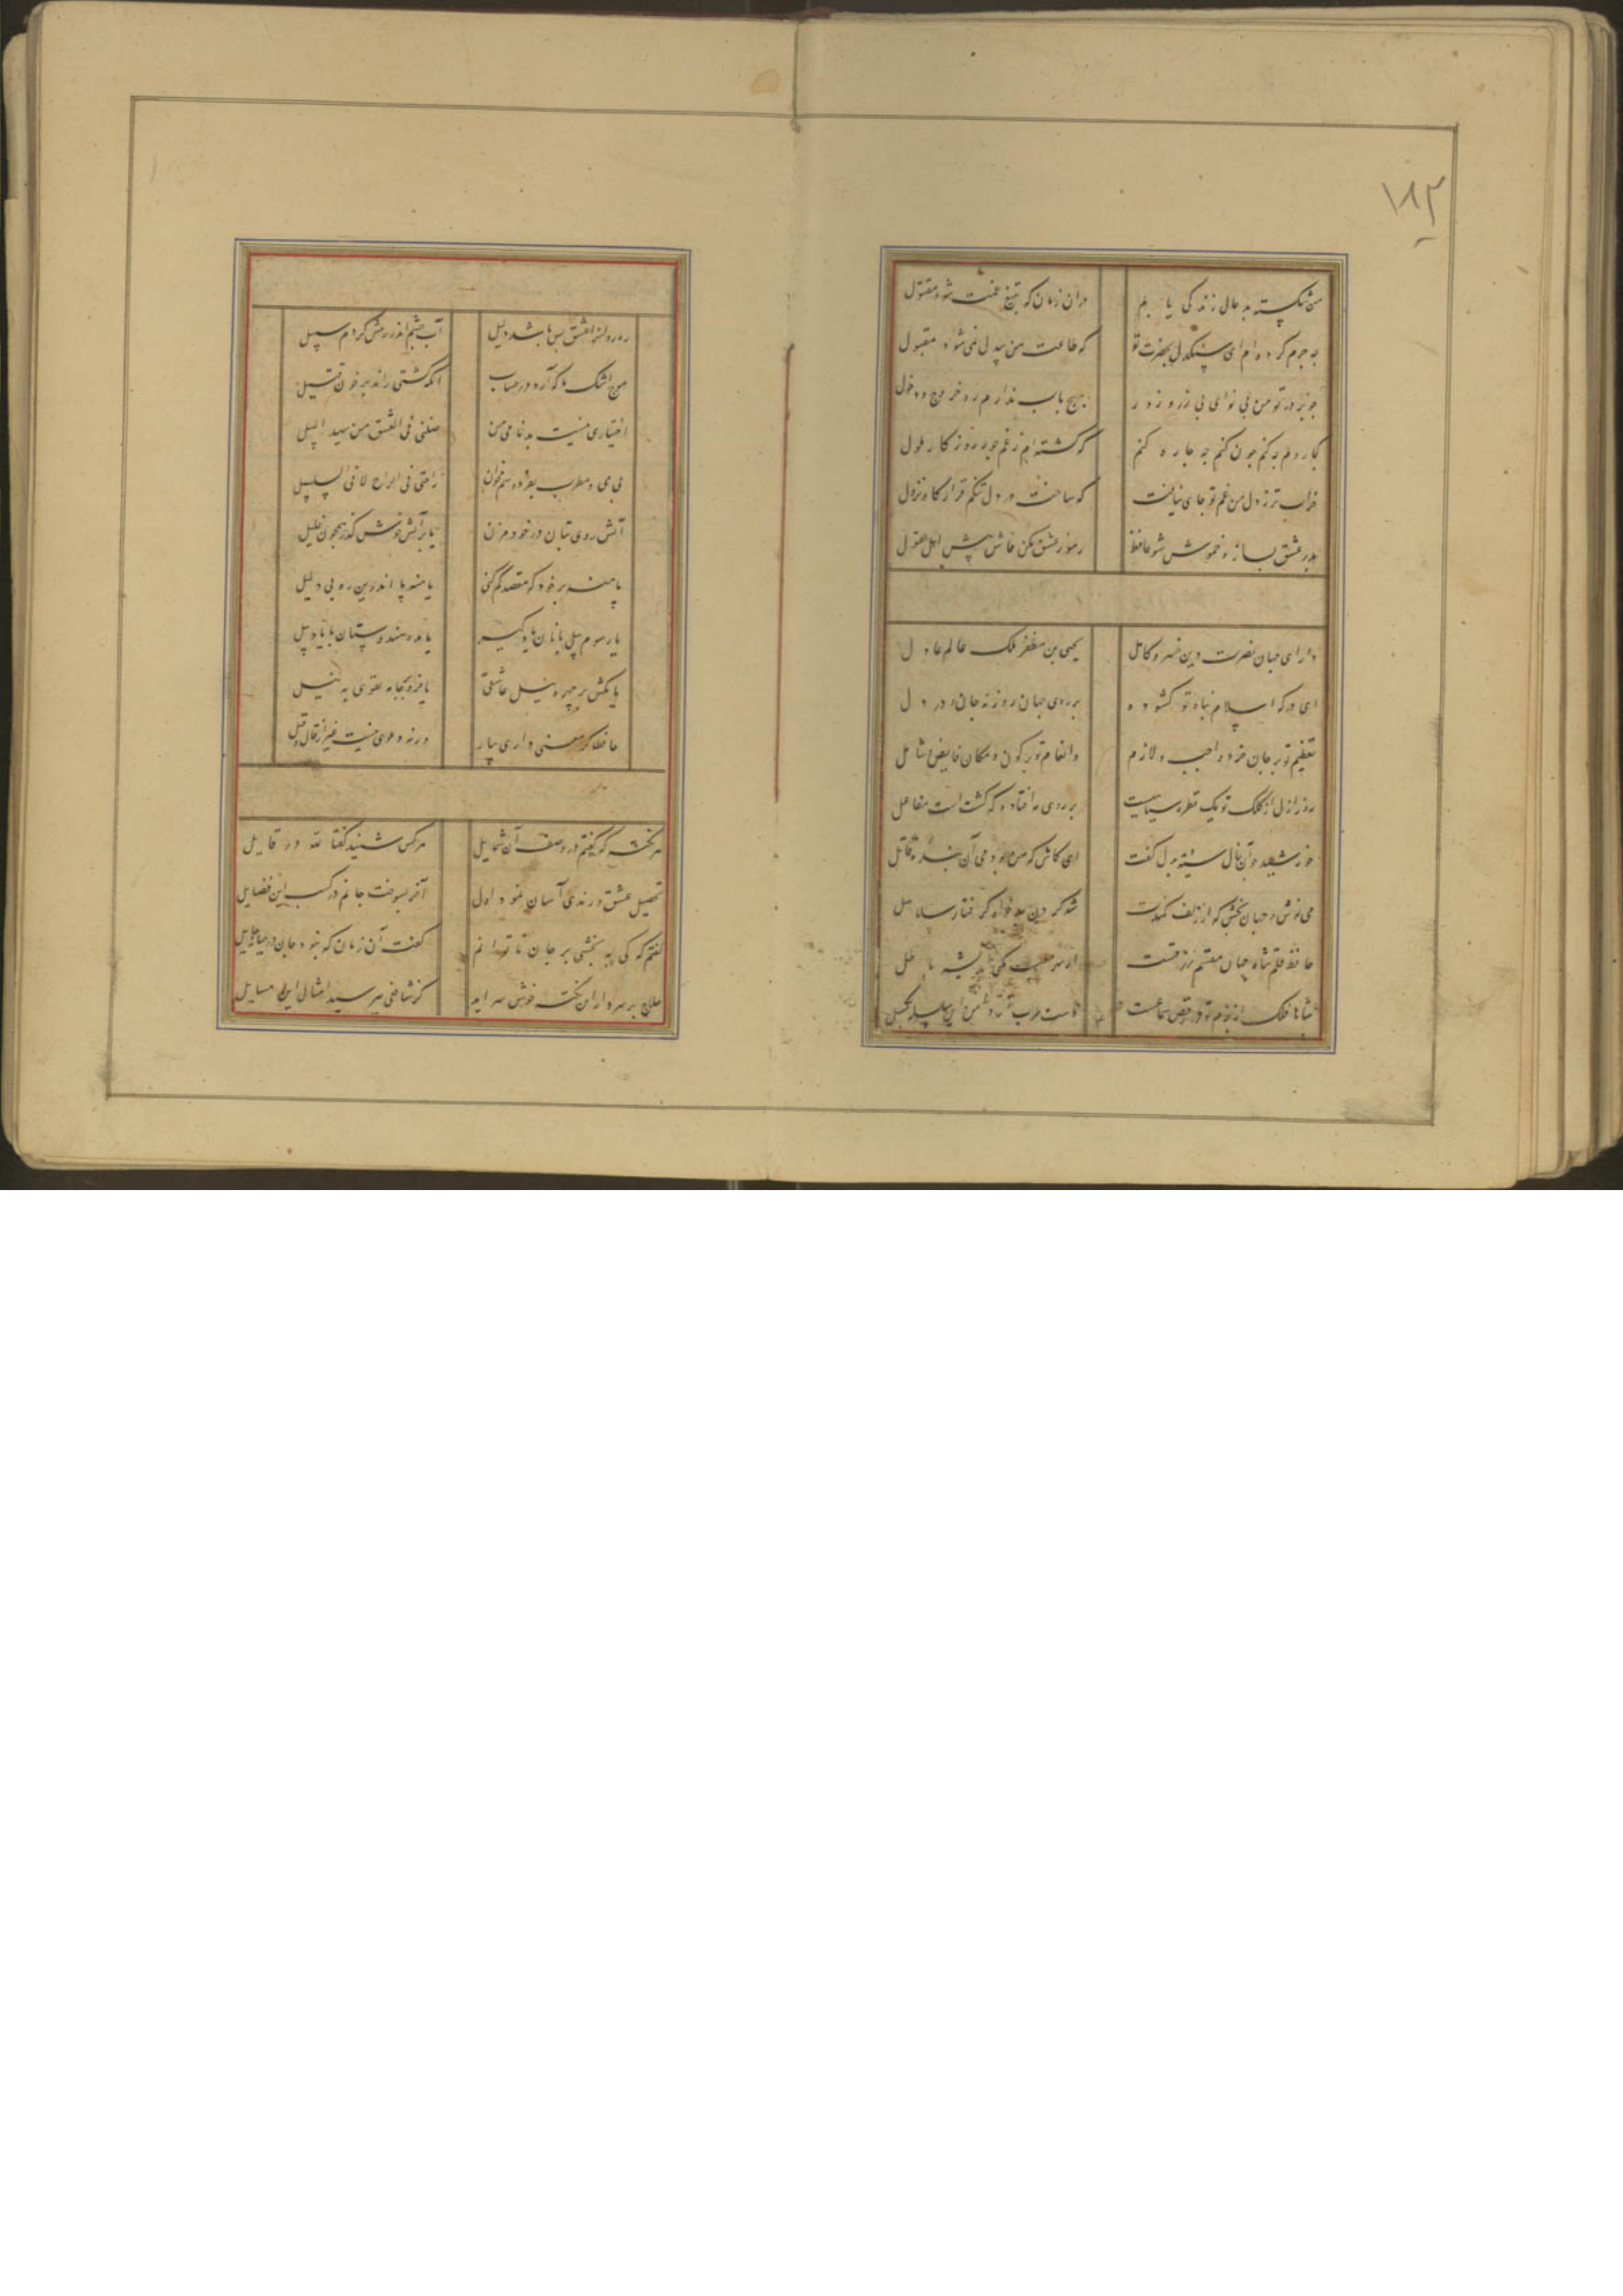 ۱۸۲
من شکسته بد حال زندگی یابم
دران زمان که بتیغ غمت شوم مقتول
چه جرم کرده‌ام ای سنگدل بحضرت تو
که طاعت من بیدل نمی‌شود مقبول
چو بر در تو من بی نوای بی زر و زور
بهیچ باب ندارم ره خروج و دخول
کجا روم چه کنم چون کنم چه چاره کنم
که گشته‌ام ز غم جور روزگار ملول
خراب تر ز دل من غم تو جای نیافت
که ساخت در دل تنگم قرار گاه نزول
بدرد عشق بساز و خموش شو حافظ
رموز عشق مکن فاش پیش اهل عقول
دارای جهان نصرت دین خسرو کامل
یحیی بن مظفر ملک عالم عادل
ای درگه اسلام پناه تو گشوده
بر روی جهان روزنه جان و در دل
تعظیم تو بر جان خرد واجب و لازم
وانعام تو بر کون و مکان فایض و شامل
روز ازل از کلک تو یک قطره سیاهیست
بر روی مه افتاد که گشت
خورشید چو آن خال سیه دید بدل گفت
ای کاش که من بودمی آن بنده مقبل
می نوش و جهان بخش که از زلف کمندت
شد گردن بدخواه گرفتار سلاسل
حافظ قلم شاه جهان مقسم رزقست
از بهر معیشت مکن اندیشه باطل
شاها فلک از بزم تو در رقص و سماعست
دست طرب از دامن این سلسله مگسل
رهروانرا عشق بس باشد دلیل
آب چشم اندر رهش کردم سبیل
موج اشک ما کی آرد در حساب
آنکه کشتی راند بر خون قتیل
اختیاری نیست بدنامی من
ضلنی فی العشق من یهدی السبیل
بی می و مطرب بفردوسم مخوان
راحتی فی الراح لا فی السلسبیل
آتش روی بتان در خود مزن
یا بر آتش خوش گذر همچون خلیل
یا بنه بر خود که مقصد گم کنی
یا منه پا اندرین ره بی دلیل
یا رسوم پیل بانان یاد گیر
یا مده هندوستان با یاد پیل
یا مکش بر چهره نیل عاشقی
یا فرو بر جامه تقوی به نیل
حافظا گر معنی داری بیار
ورنه دعوی نیست غیر از قال و قیل
هر نکته که گفتم در وصف آن شمایل
هر کس شنید گفتا لله در قایل
تحصیل عشق و رندی آسان نمود اول
آخر بسوخت جانم در کسب این فضایل
گفتم که کی ببخشی بر جان ناتوانم
گفت آن زمان که نبود جان در میانه حایل
حلاج بر سر دار این نکته خوش سراید
کز شافعی مپرسید امثال این مسایل